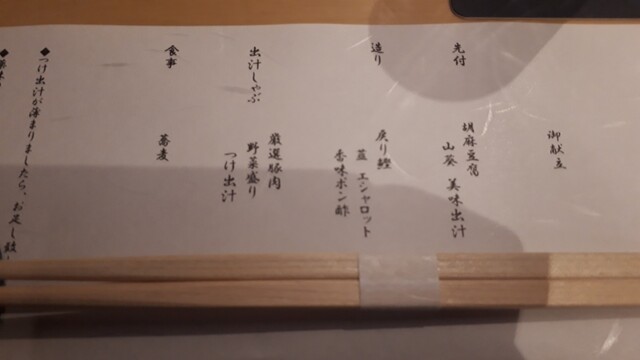 御献立
先付
胡麻豆腐
山葵 美味出汁
造り
炙り鰹
茗 エシャロット
香味ポン酢
出汁しゃぶ
厳選豚肉
野菜盛り
つけ出汁
食事
蕎麦
◆つけ出汁が薄まりましたら、お足し致し